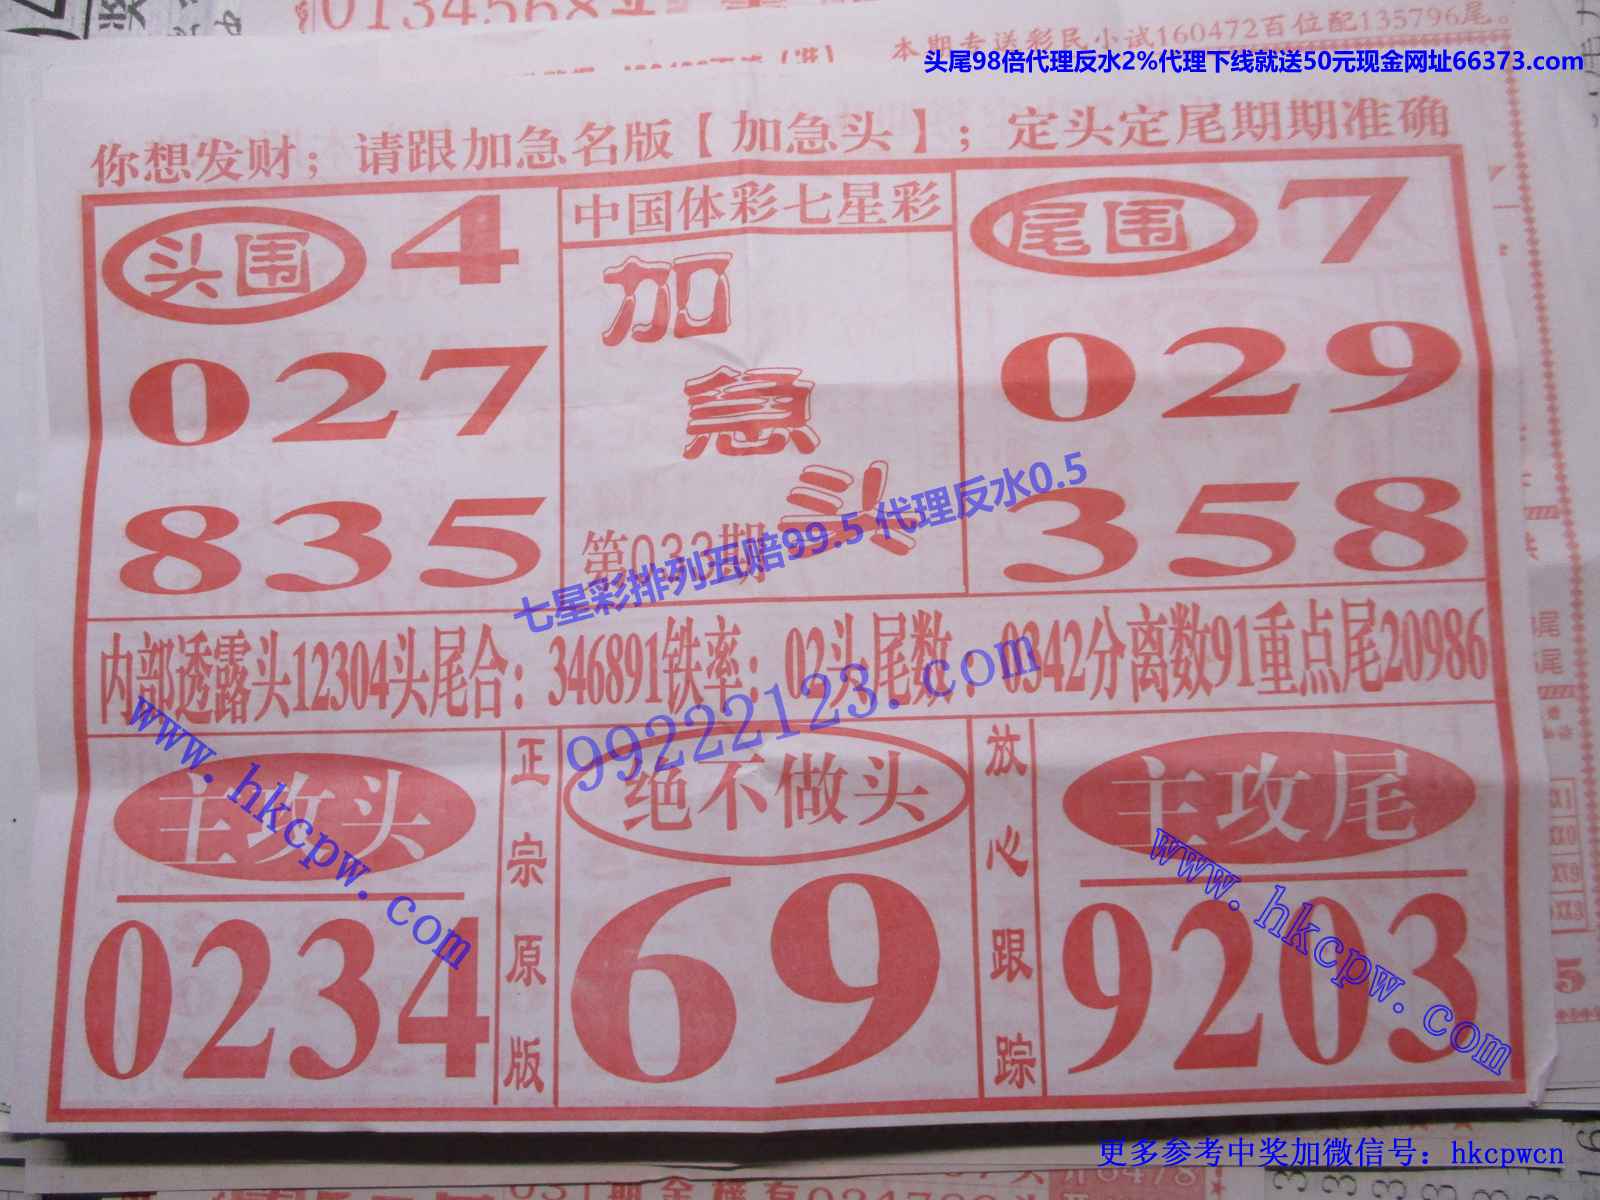 0134568
本期专送彩民小试160472百位配135796尾。
头尾98倍代理反水2%代理下线就送50元现金网址66373.com
你想发财；请跟加急名版【加急头】；定头定尾期期准确
头围 4
027
835
中国体彩七星彩
加急头
第033期
尾围 7
029
358
七星彩排列五赔99.5 代理反水0.5
内部透露头12304头尾合：346891铁率：02头尾数：0342分离数91重点尾20986
99222123.com
www.hkcpw.com
主攻头
0234
正宗原版
绝不做头
69
放心跟踪
主攻尾
9203
www.hkcpw.com
更多参考中奖加微信号：hkcpwcn